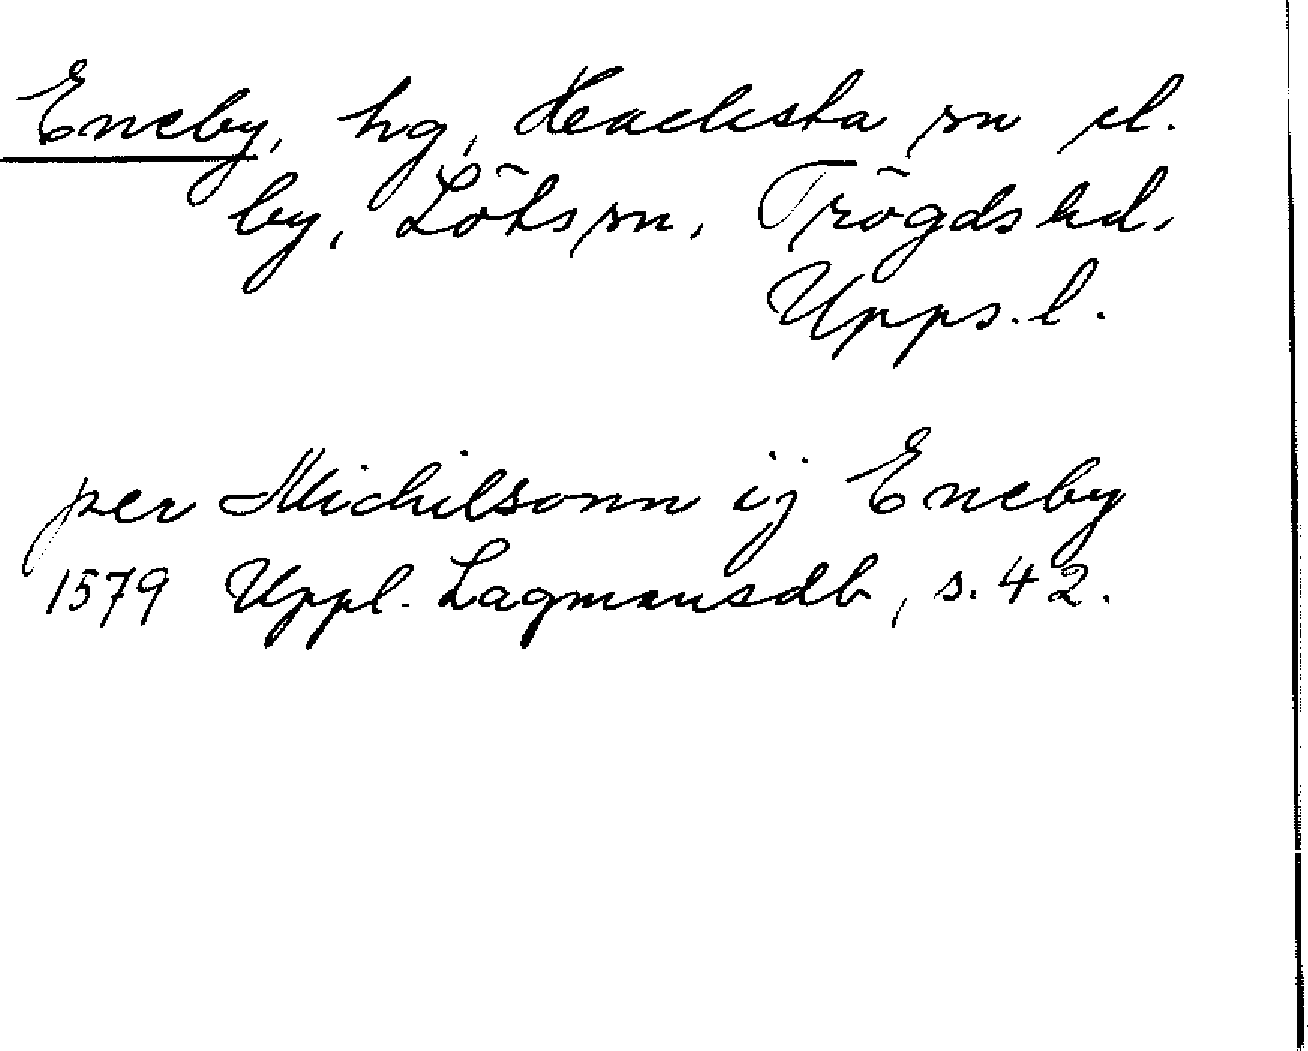 Eneby, hg, Hacksta sn el.
by, Löts sn, Trögds hd,
Upps. l.
per Michilsonn ij Eneby
1579 Uppl. Lagmansdb, s. 42.